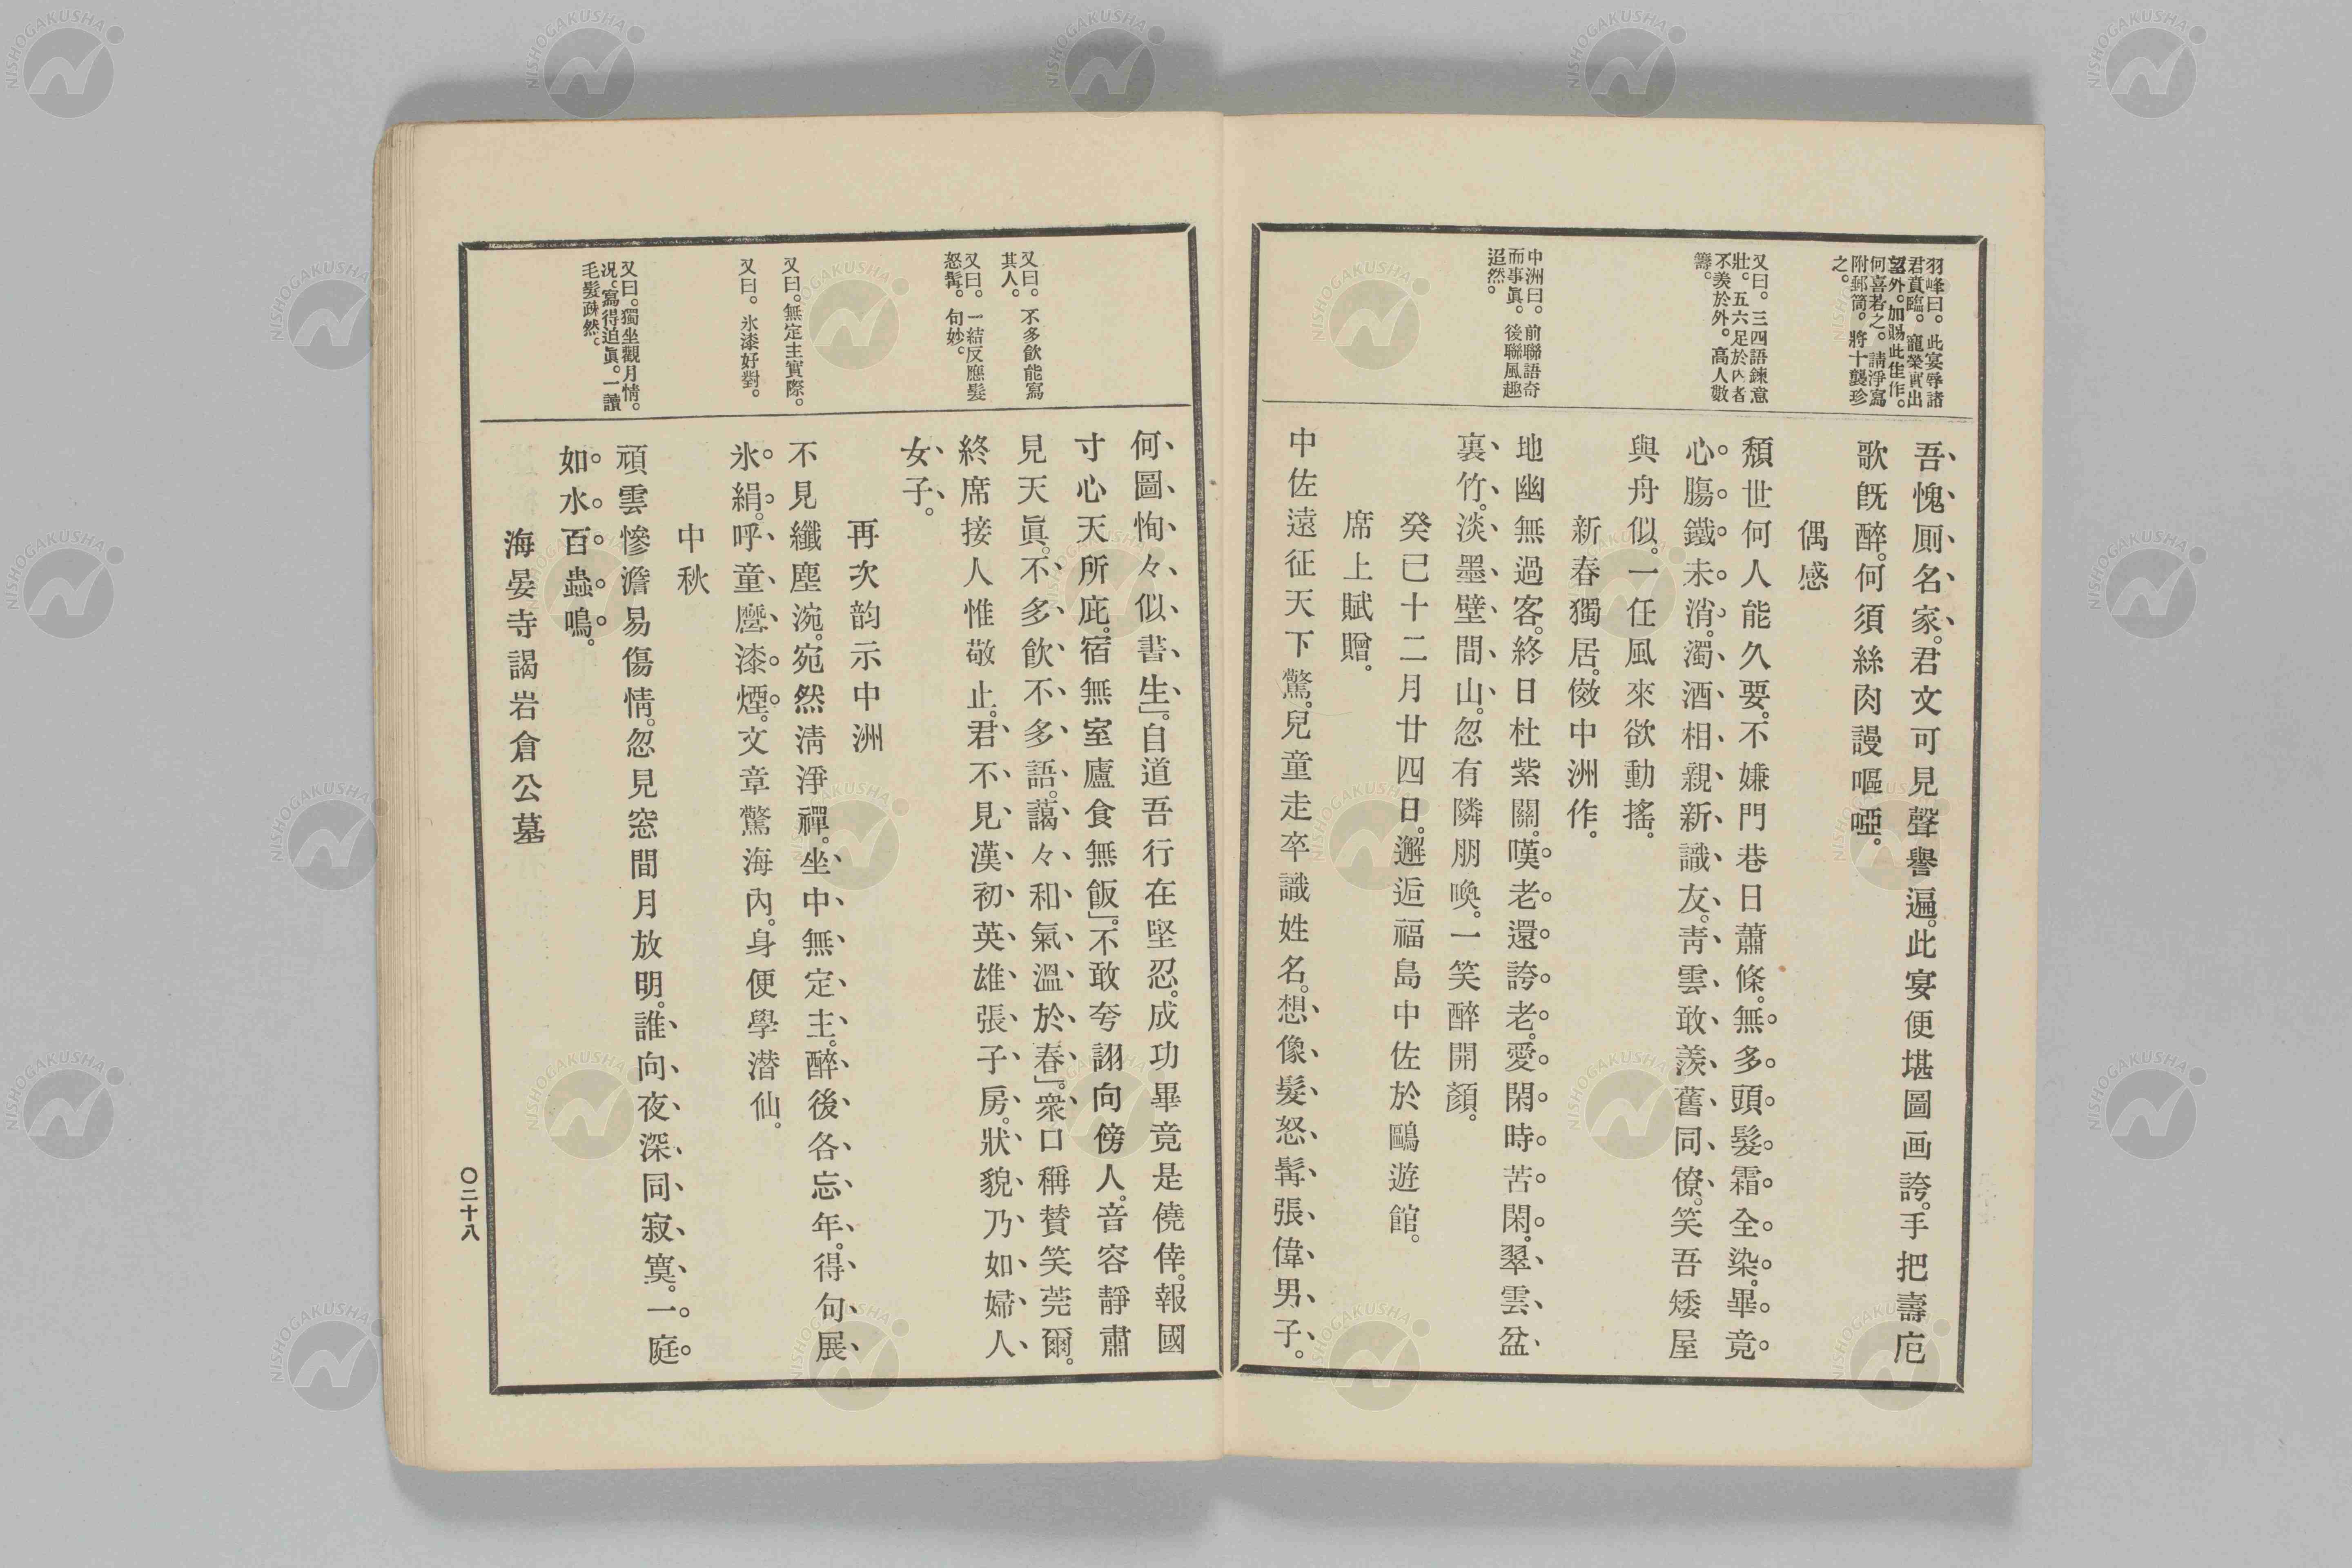 羽峰曰。此宴辱諸
君賁臨。寵榮實出
望外。加賜此佳作。
何喜若之。請淨寫
附郵筒。將十襲珍
之。
又曰。三四語鍊意
壯。五六足於內者
不羨於外。高人數
籌。
中洲曰。前聯語奇
而事眞。後聯風趣
迢然。
吾愧厠名家。君文可見聲譽遍。此宴便堪圖画誇。手把壽卮
歌旣醉。何須絲肉謾嘔啞。
偶感
頽世何人能久要。不嫌門巷日蕭條。無多頭髮霜全染。畢竟
心膓鐵未消。濁酒相親新識友。靑雲敢羨舊同僚。笑吾矮屋
與舟似。一任風來欲動搖。
新春獨居。傚中洲作。
地幽無過客。終日杜紫關。嘆老還誇老。愛閑時苦閑。翠雲盆
裏竹。淡墨壁間山。忽有隣朋喚。一笑醉開顏。
癸巳十二月廿四日。邂逅福島中佐於鷗遊館。
席上賦贈。
中佐遠征天下驚。兒童走卒識姓名。想像髮怒髯張偉男子。
又曰。不多飮能寫
其人。
又曰。一結反應髮
怒髯。句妙。
又曰。無定主實際。
又曰。氷漆好對。
又曰。獨坐觀月情。
況。寫得迫眞。一讀
毛髮疎然。
何圖恂々似書生」。自道吾行在堅忍。成功畢竟是僥倖。報國
寸心天所庇。宿無室廬食無飯」。不敢夸詡向傍人。音容靜肅
見天眞。不多飮不多語。藹々和氣溫於春」。衆口稱賛笑莞爾。
終席接人惟敬止。君不見漢初英雄張子房。狀貌乃如婦人
女子。
再次韵示中洲
不見纖塵涴。宛然淸淨禪。坐中無定主。醉後各忘年。得句展
氷絹。呼童磨漆煙。文章驚海內。身便學潛仙。
中秋
頑雲慘澹易傷情。忽見窓間月放明。誰向夜深同寂寞。一庭
如水百蟲鳴。
海晏寺謁岩倉公墓
〇二十八
NISHOGAKUSHA